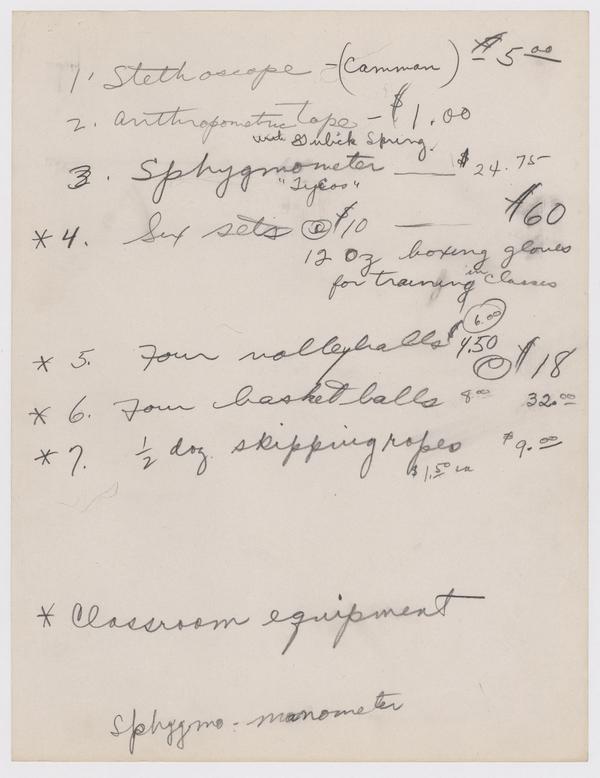 1. Stethoscope - (Camman) $5.00
2. Anthropometric tape - $1.00
with Gulick Spring.
3. Sphygmometer — $24.75
"Tycos"
* 4. Six sets @ $10 — $60
12 oz boxing gloves
for training in classes
6.00
* 5. Four volleyballs $4.50 $18
* 6. Four basketballs 8.00 32.00
* 7. 1/2 doz. skipping ropes $9.00
$1.50 ea
* Classroom equipment
Sphygmo-manometer